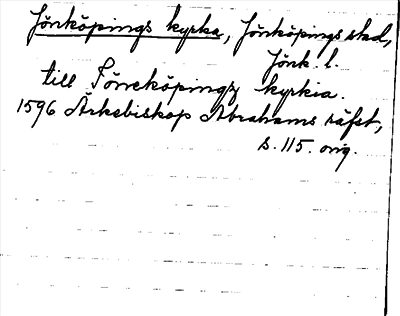 Jönköpings kyrka, Jönköpings stad,
Jönk. l.
till Iöneköpingz kyrkia.
1596 Ärkebiskop Abrahams räfst,
s. 115. orig.